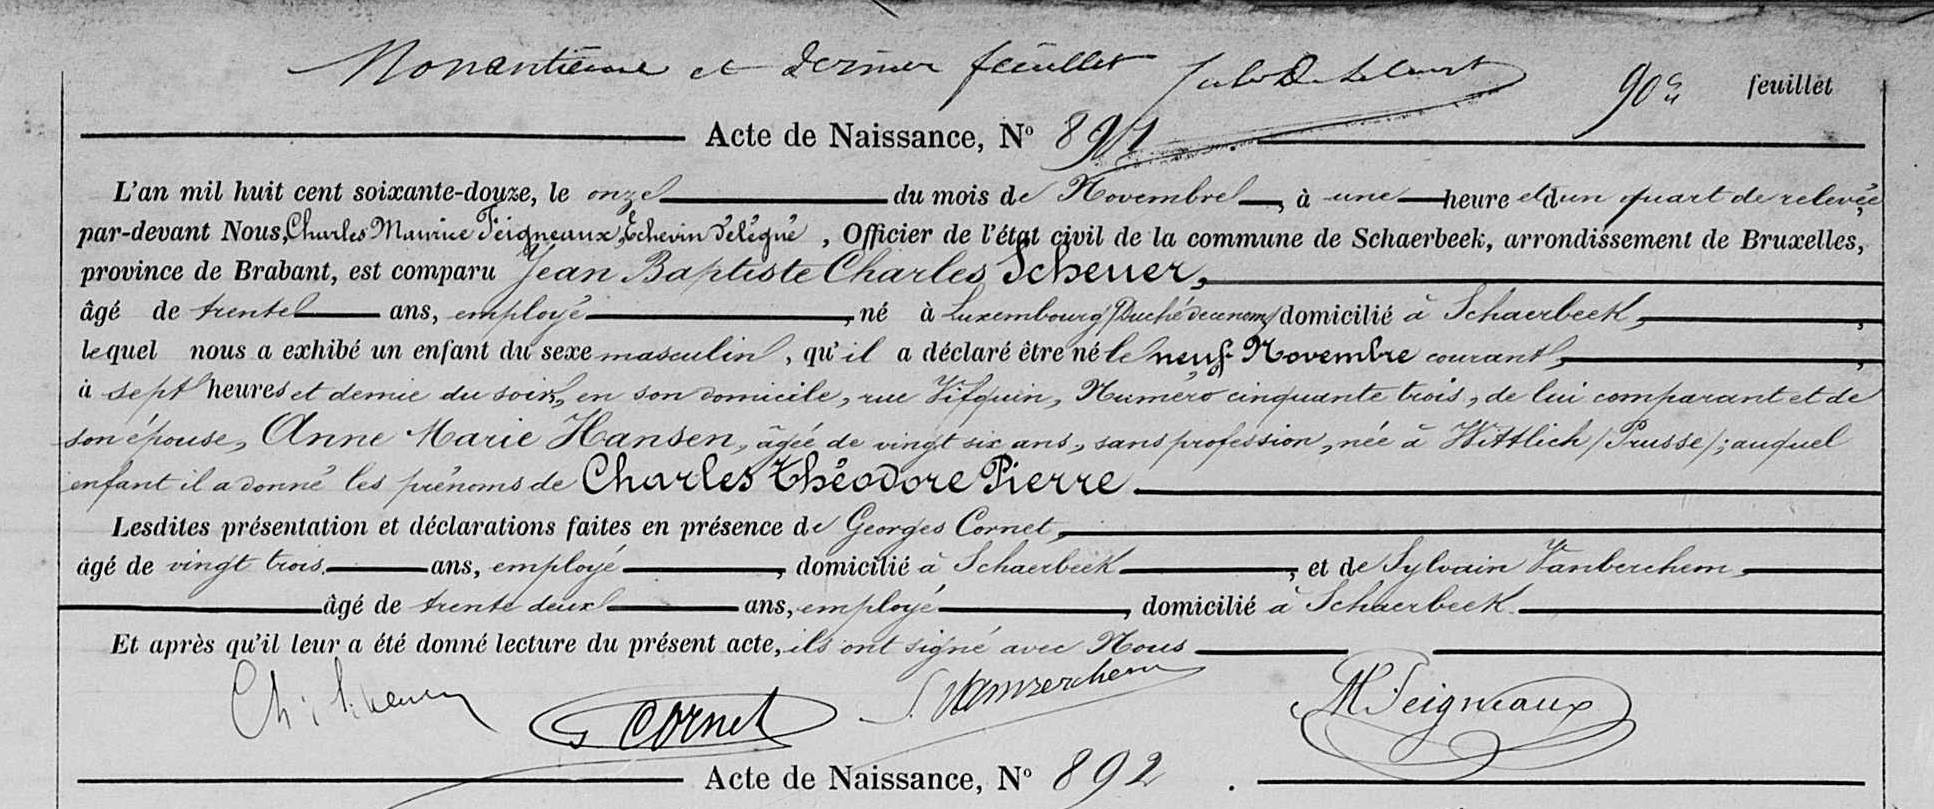 Nonantième et dernier feuillet
90e feuillet
Acte de Naissance, No 891
L'an mil huit cent soixante-douze, le onze du mois de Novembre, à une heure et d'un quart de relevée,
par-devant Nous, Charles Maurice Seigneaux, Echevin délégué, Officier de l'état civil de la commune de Schaerbeek, arrondissement de Bruxelles,
province de Brabant, est comparu Jean Baptiste Charles Scheuer,
âgé de trente ans, employé, né à Luxembourg /Duché de ce nom/ domicilié à Schaerbeek,
lequel nous a exhibé un enfant du sexe masculin, qu'il a déclaré être né le neuf Novembre courant,
à sept heures et demie du soir, en son domicile, rue Vifquin, Numéro cinquante trois, de lui comparant et de
son épouse, Anne Marie Hansen, âgée de vingt six ans, sans profession, née à Wittlich /Prusse/; auquel
enfant il a donné les prénoms de Charles Théodore Pierre
Lesdites présentation et déclarations faites en présence de Georges Cornet,
âgé de vingt trois ans, employé, domicilié à Schaerbeek, et de Sylvain Vanberchem,
âgé de trente deux ans, employé, domicilié à Schaerbeek.
Et après qu'il leur a été donné lecture du présent acte, ils ont signé avec Nous
Ch: Scheuer
G Cornet
S. Vanberchem
M Seigneaux
Acte de Naissance, No 892.